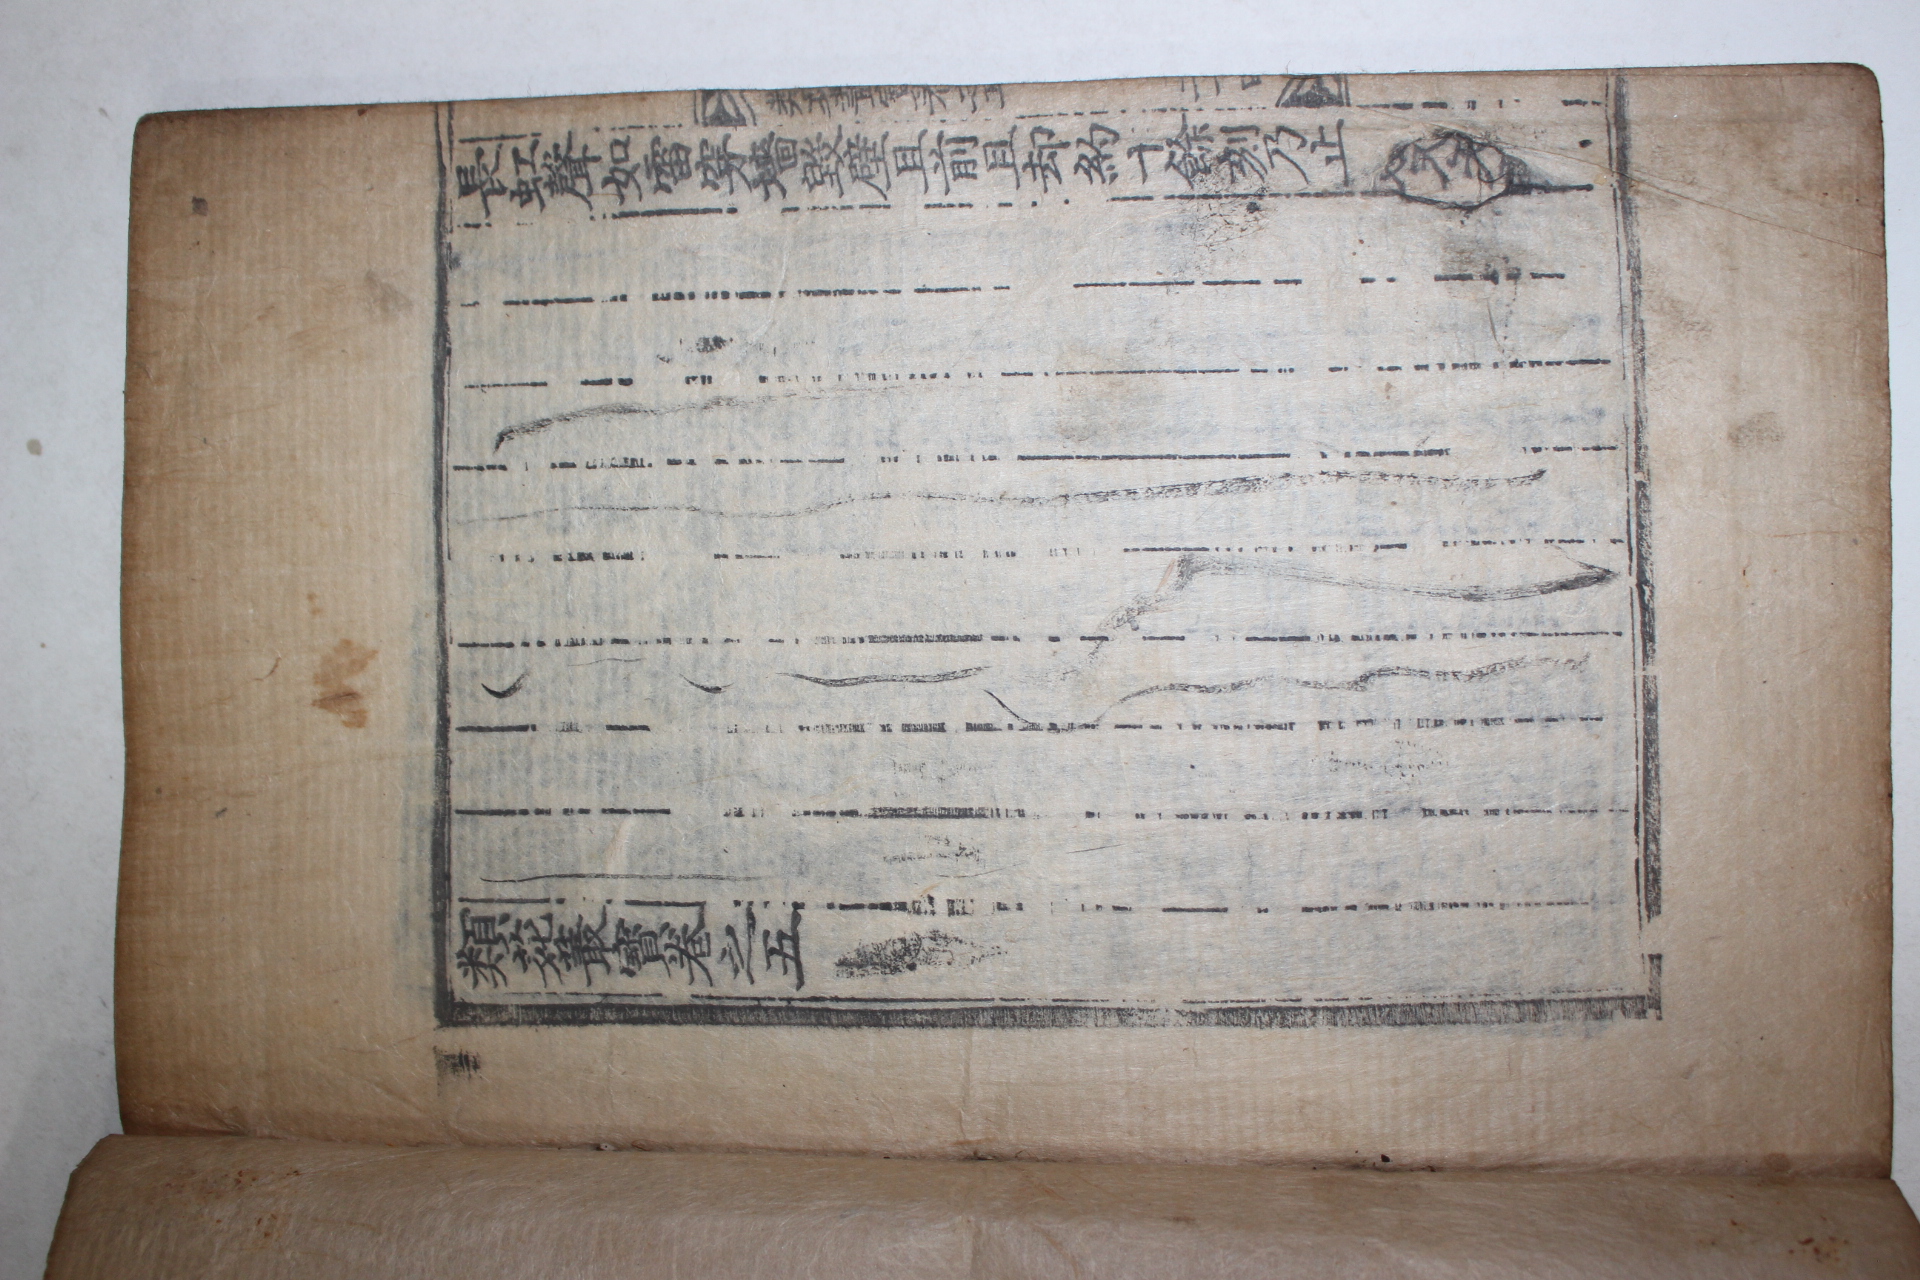 長虹聲如雷穿墻毀壁且前且却約十餘刻乃止
類苑叢寶卷之五